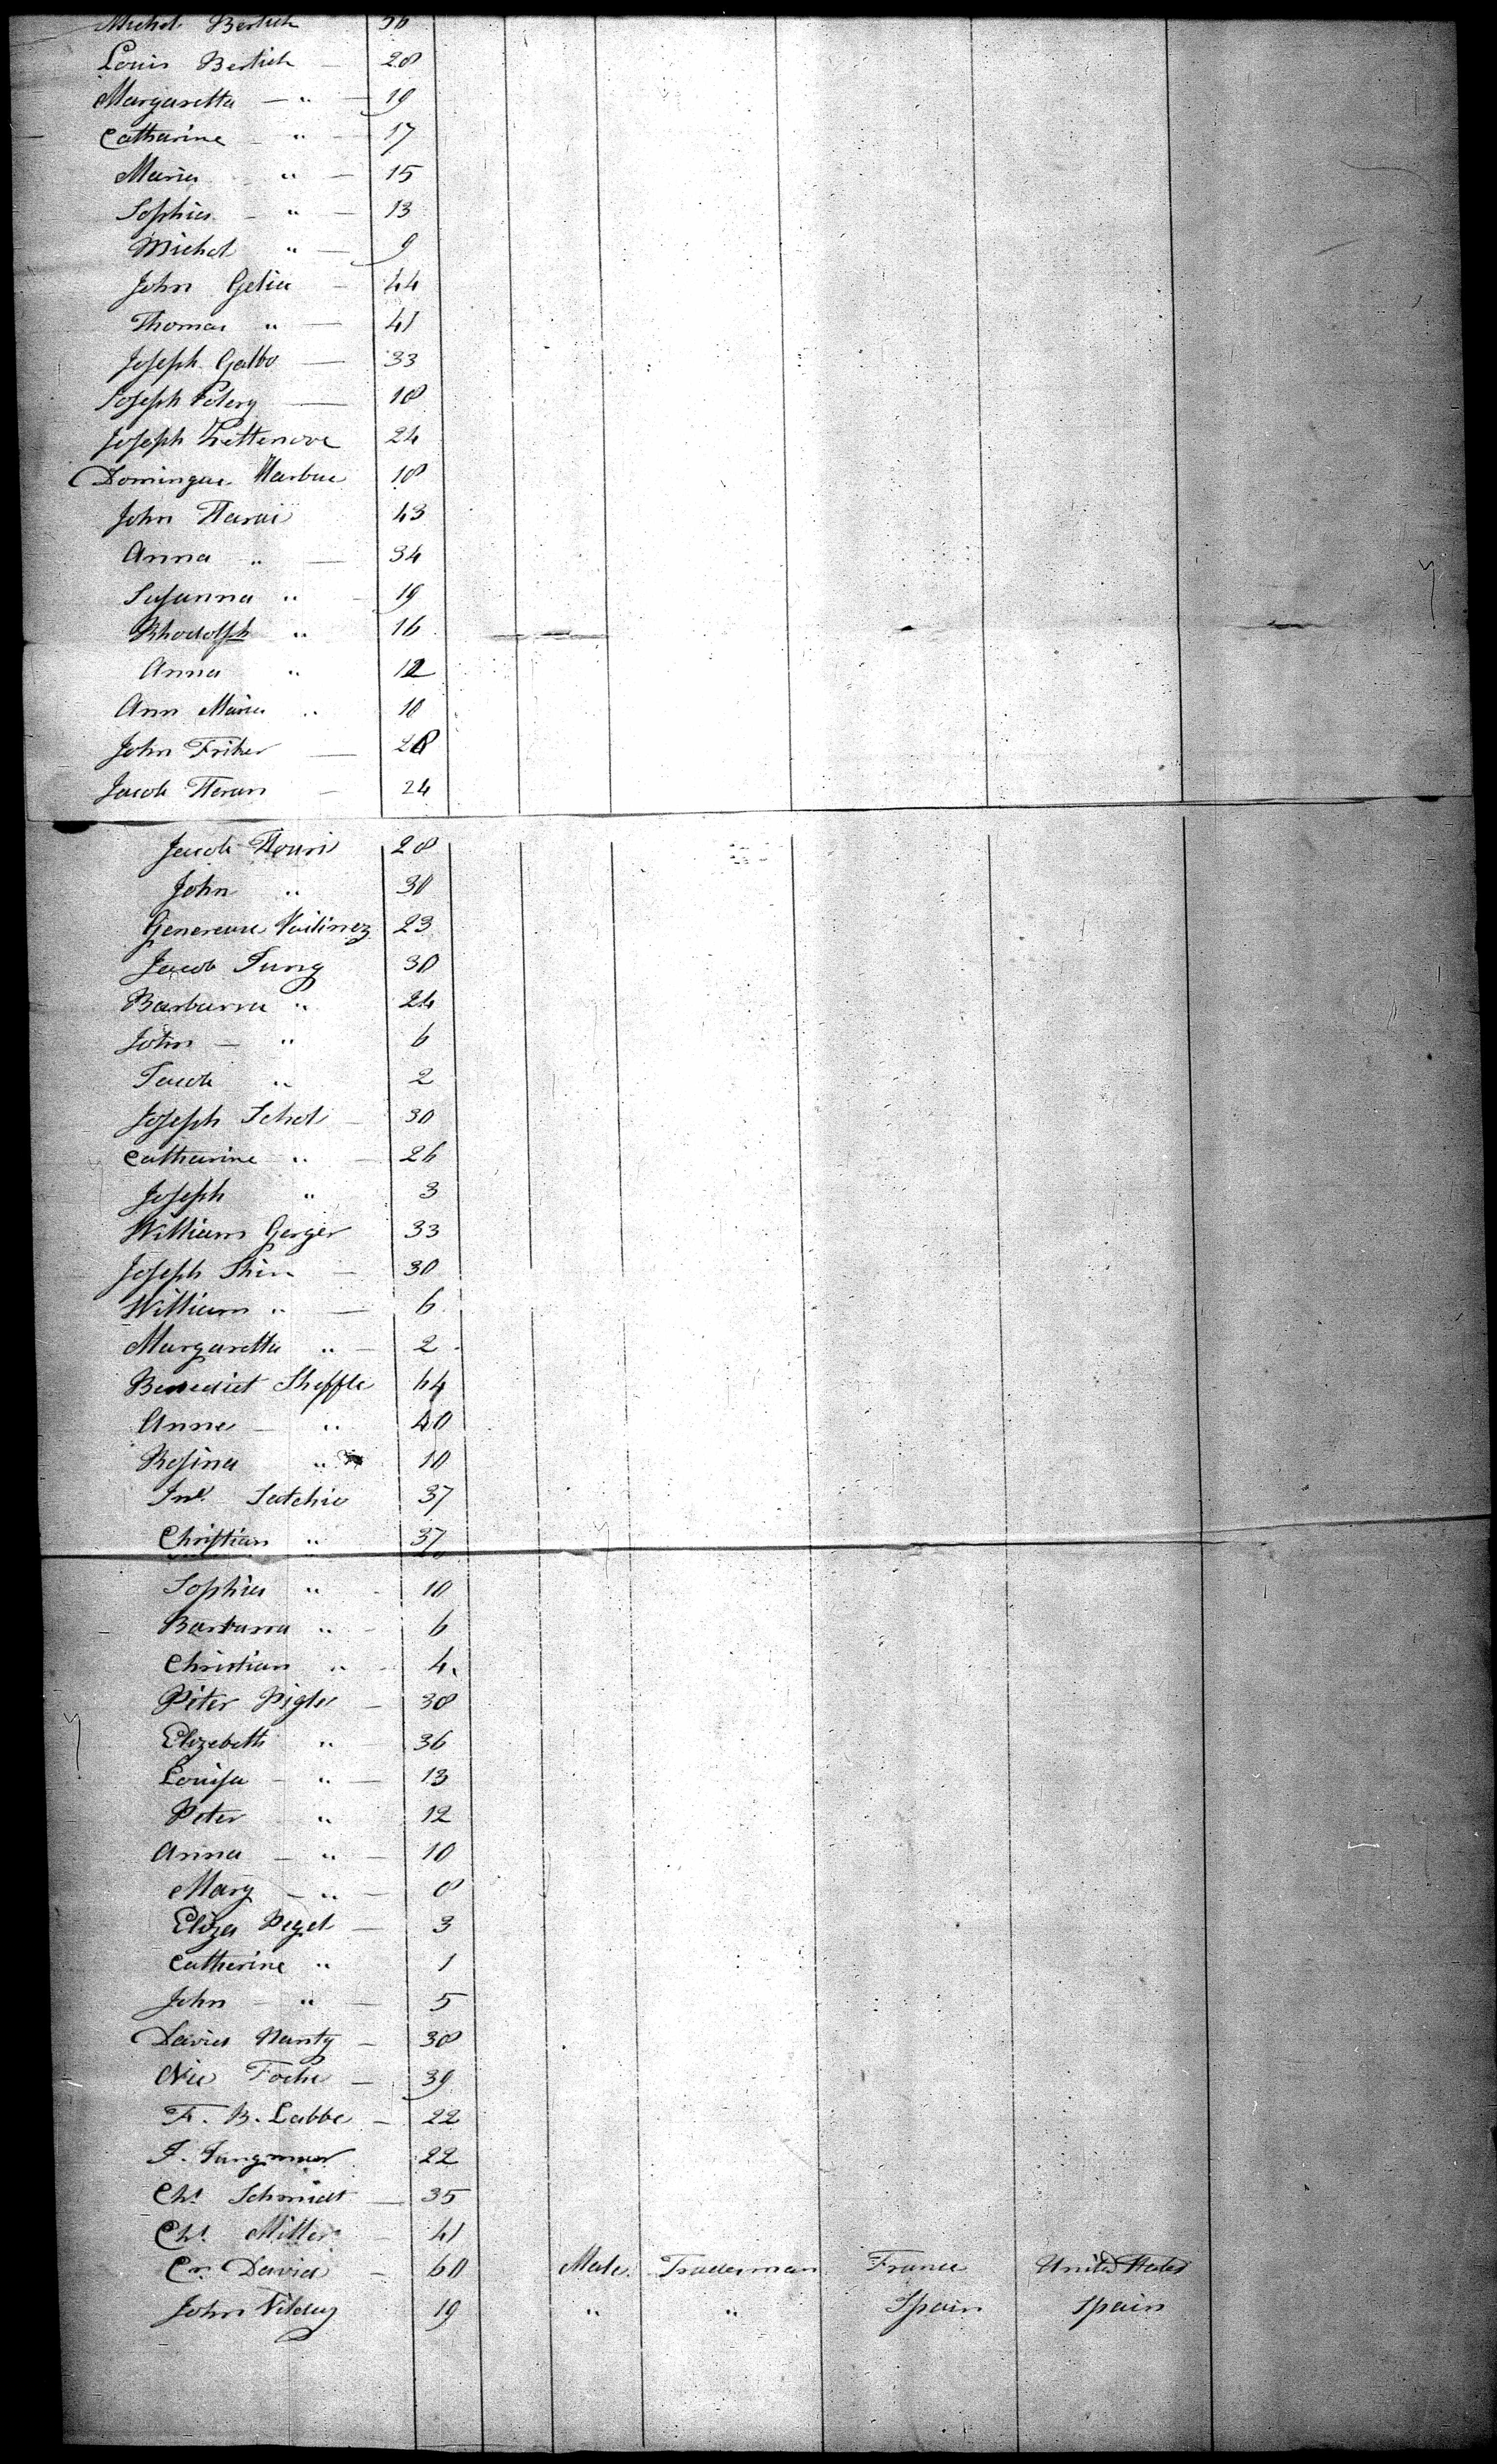 Michel Bertich 36
Louis Bertich — 28
Margaretta — " — 19
Catharine — " — 17
Maria " — 15
Sophia — " — 13
Michel " — 9
John Gelia — 44
Thomas " — 41
Joseph Galbo — 33
Joseph Polery — 18
Joseph 24
Domingue 18
John 43
Anna " — 34
Susanna " — 19
Rhodolph " 16
Anna " 12
Ann Maria " 10
John Friker — 28
Jacob — 24
Jacob 28
John " 30
23
Jacob Jung 30
Barbarra " 24
John — " 6
Jacob " 2
Joseph Schol — 30
Catharine " — 26
Joseph " 3
William Gerger 33
Joseph Shin — 30
William " — 6
Margaretta " — 2
Benedict Sheffle 64
Anne — " 40
Rosina " 10
37
Christian " 37
Sophia " - 10
Barbarra " - 6
Christian " - 4
Peter — 38
Elizebeth " — 36
Louisa — " — 13
Peter " 12
Anna — " — 10
Mary — " — 8
Eliza Pegel — 3
Catherine " 1
John — " — 5
David — 38
Nic — 39
F. B. Labbe — 22
J. Jungman 22
Chs. Schmidt — 35
Chs. Miller — 41
David — 60 Male Tradesman France United States
John 19 " " Spain Spain